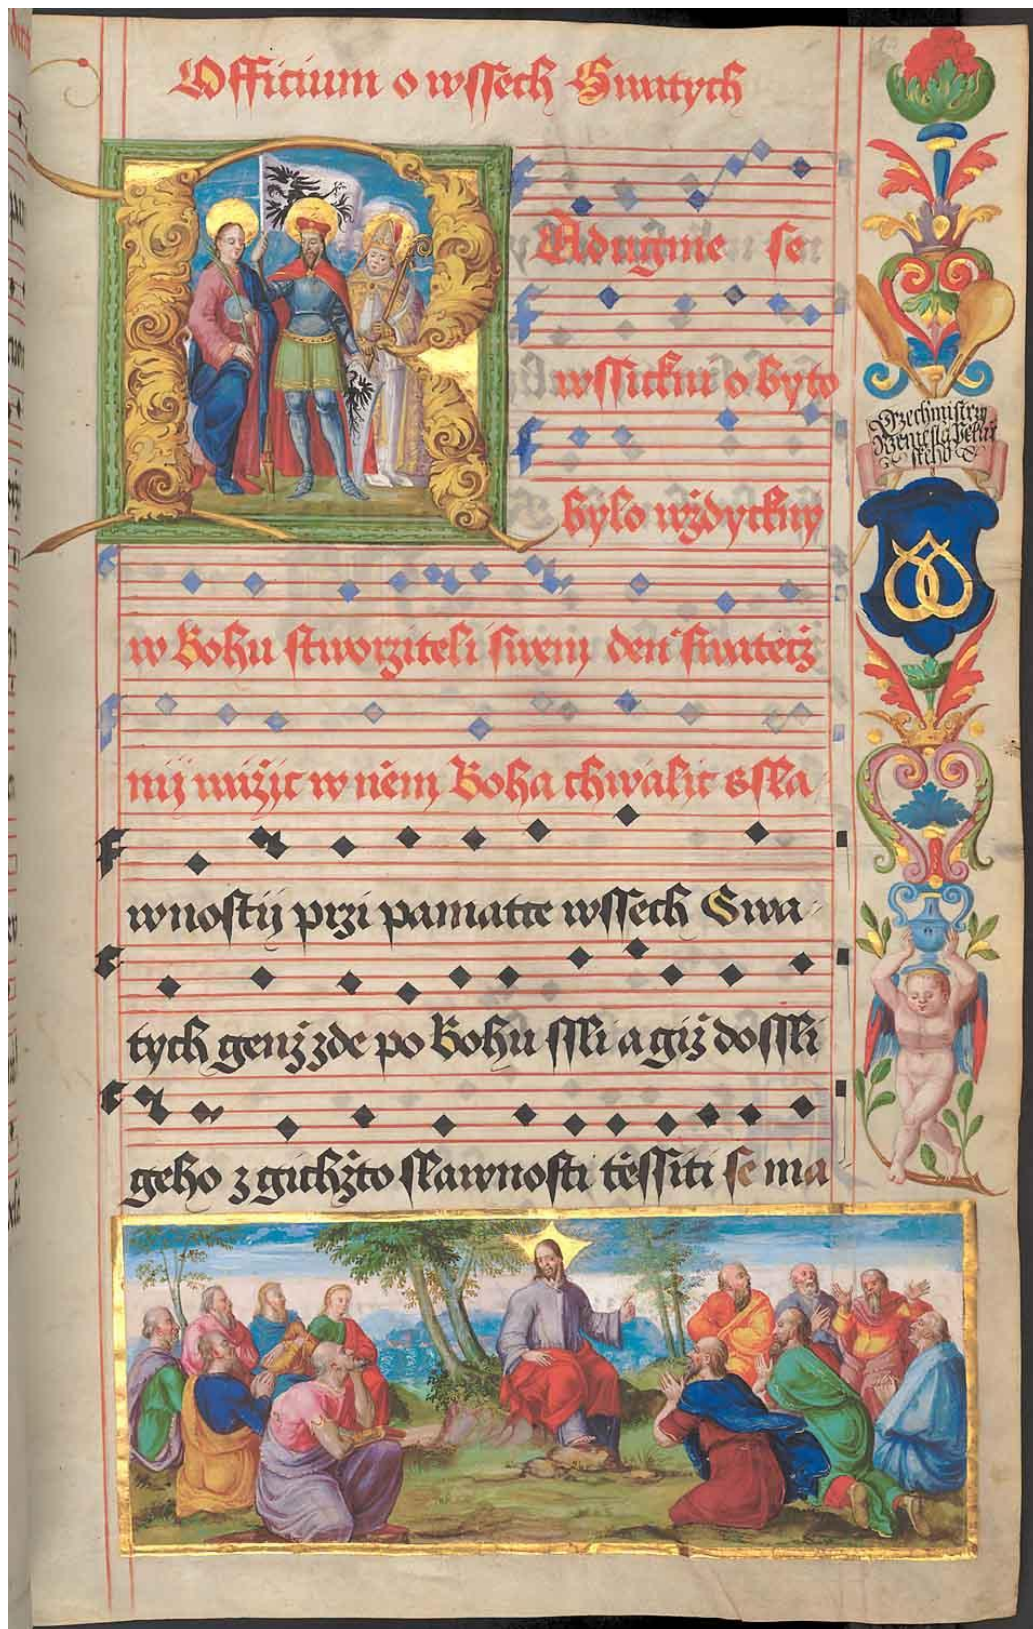 Officium o wssech Swatych
Radugme se
wssickni o byto
bylo wždyckny
w Bohu stworziteli swem den swatecž
nij magic w něm Boha chwalic s sla
wnostij przi pamatce wssech Swa
tych genž zde po Bohu ssli a giž dossli
geho z gichžto slawnosti tessiti se ma
Przedmistrzy
Rzemesla Pekarz
skeho